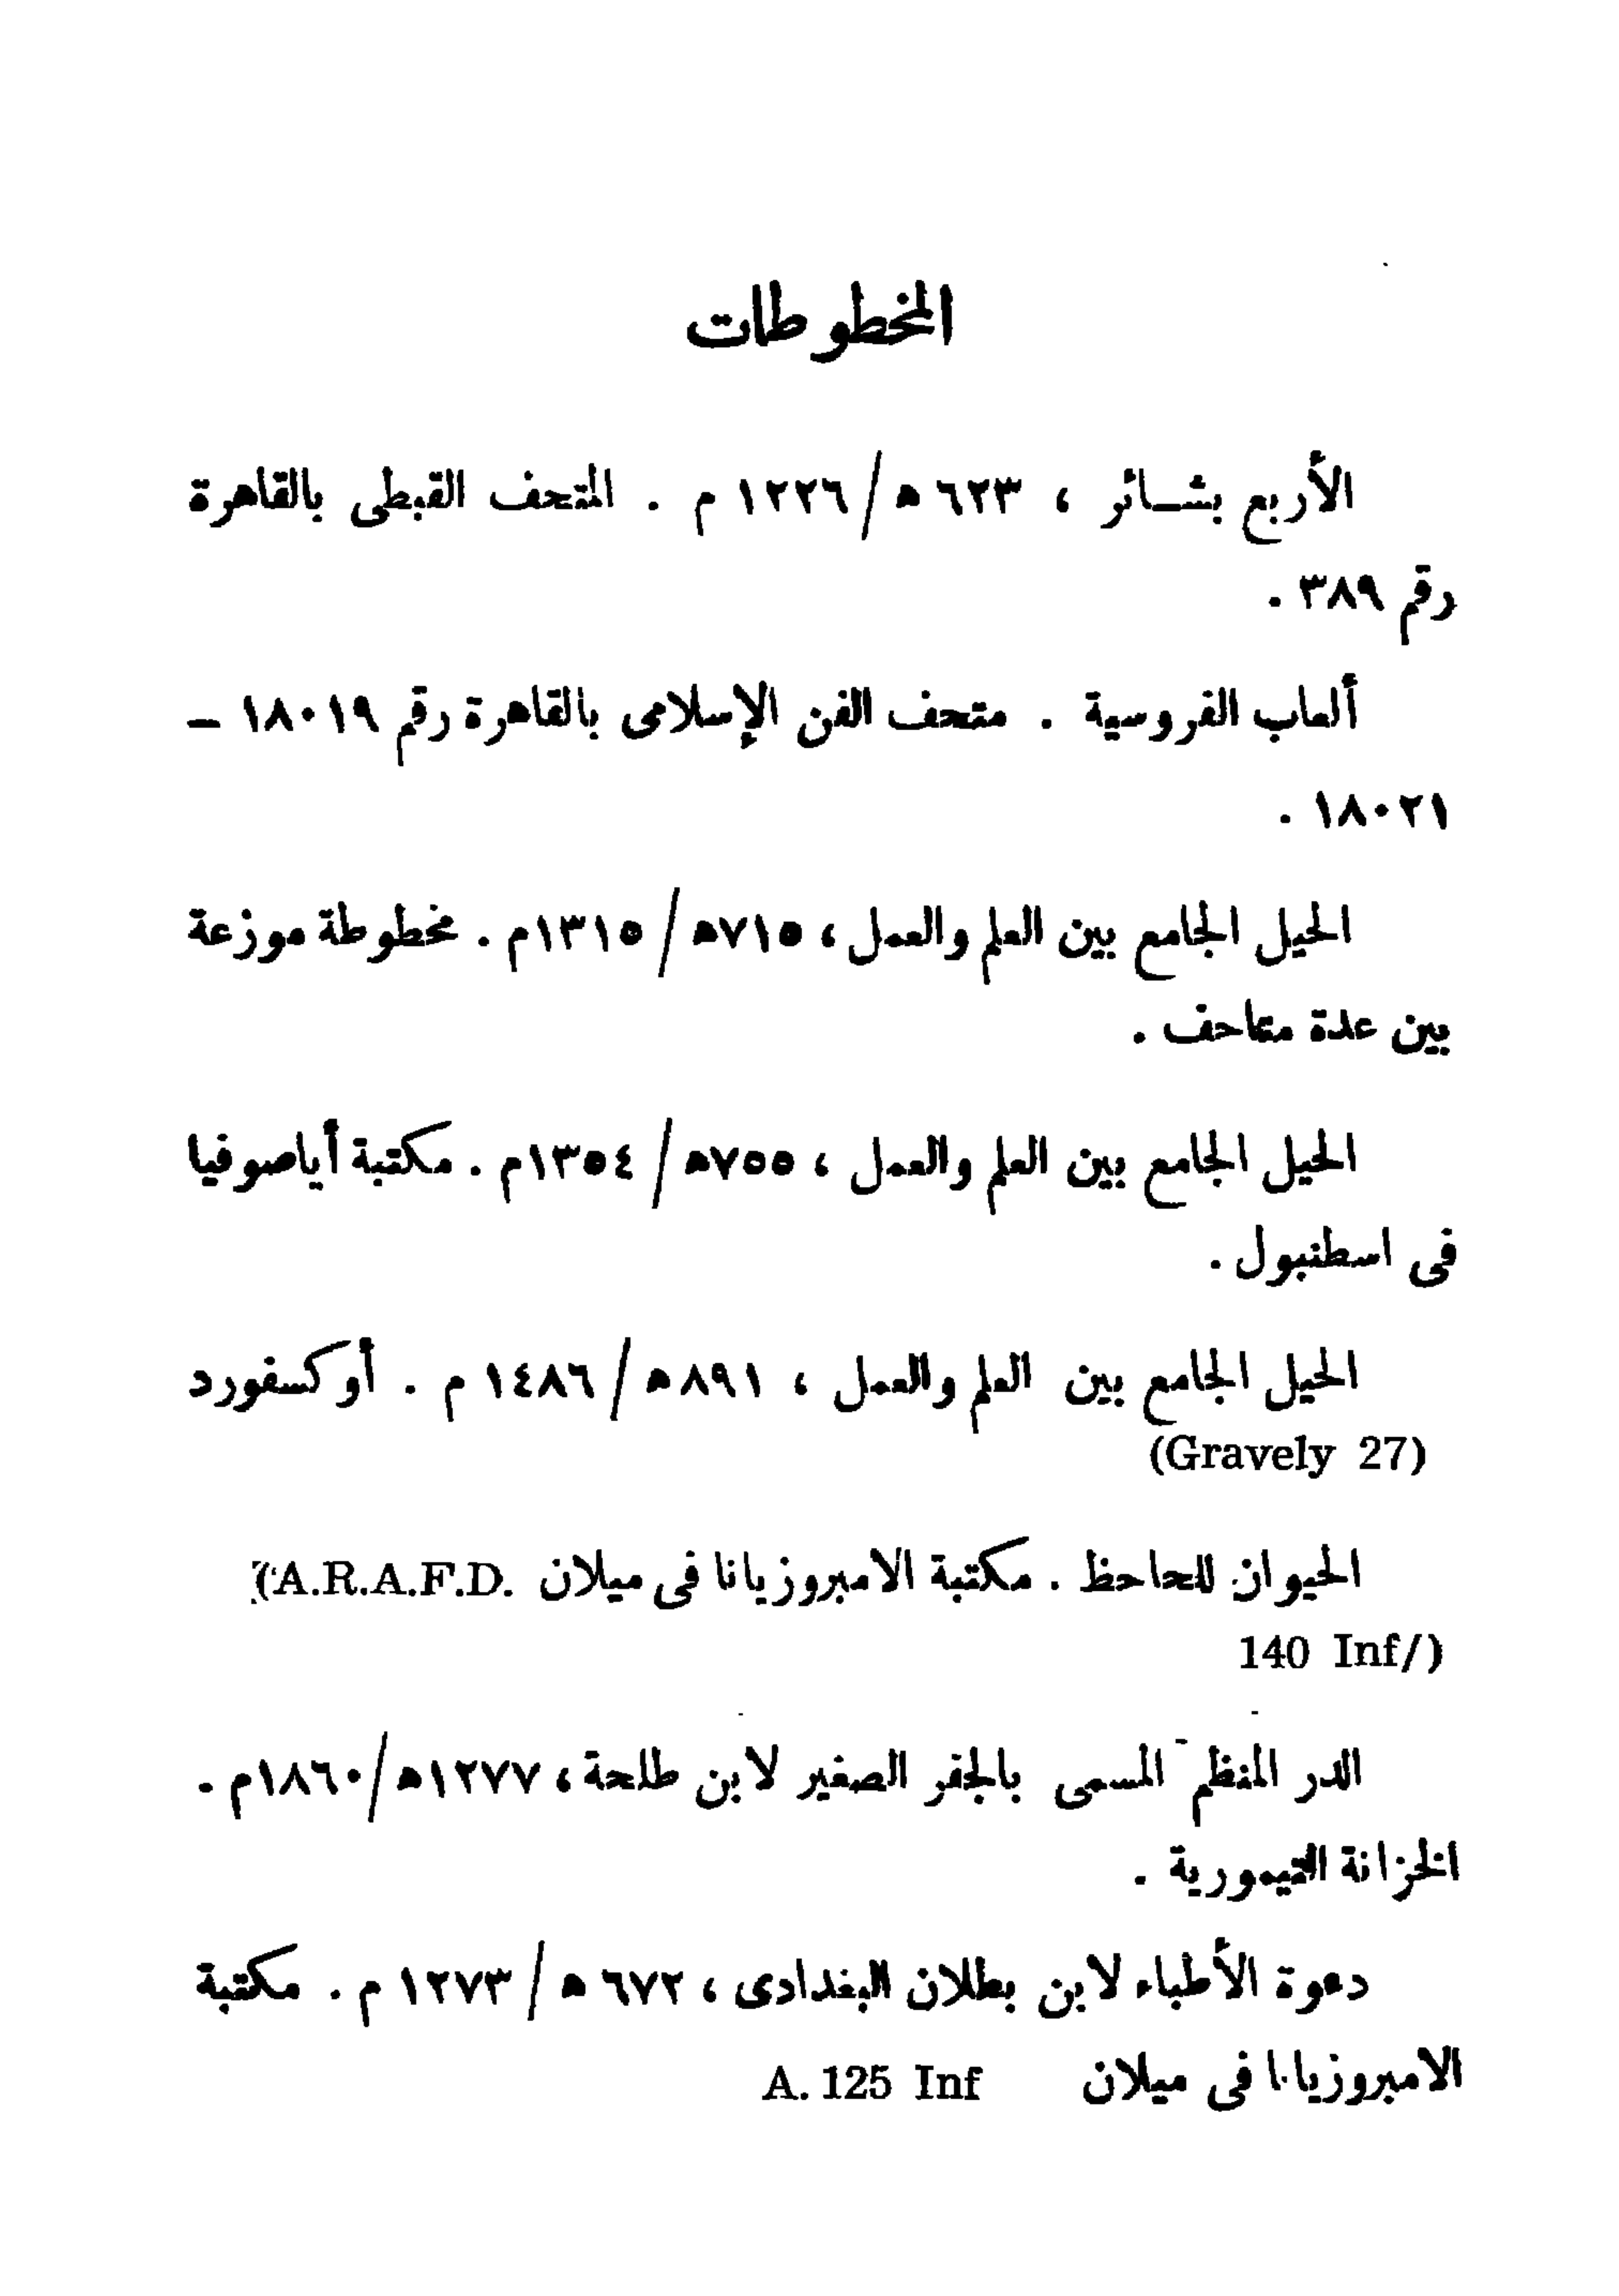 المخطوطات
الأربع بشـائر ، ٦٢٣ ه/ ١٢٢٦ م . المتحف القبطى بالقاهرة
رقم ٣٨٩ .
ألعاب الفروسية . متحف الفن الإسلامى بالقاهرة رقم ١٨٠١٩ –
١٨٠٢١ .
الحيل الجامع بين العلم والعمل ، ٧١٥ه / ١٣١٥م . مخطوطة موزعة
بين عدة متاحف .
الحيل الجامع بين العلم والعمل ، ٧٥٥ه / ١٣٥٤م . مكتبة أياصوفيا
فى اسطنبول .
الحيل الجامع بين العلم والعمل ، ٨٩١ ه/ ١٤٨٦ م . أوكسفورد
(Gravely 27)
الحيوان للجاحظ . مكتبة الامبروزيانا فى ميلان (A.R.A.F.D.
140 Inf/)
الدر المنظم المسمى بالجفر الصغير لابن طلحة ، ١٢٧٧ه/ ١٨٦٠م .
الخزانة التيمورية .
دعوة الأطباء لابن بطلان البغدادى ، ٦٧٢ ه/ ١٢٧٣ م . مكتبة
الامبروزيانا فى ميلان A. 125 Inf